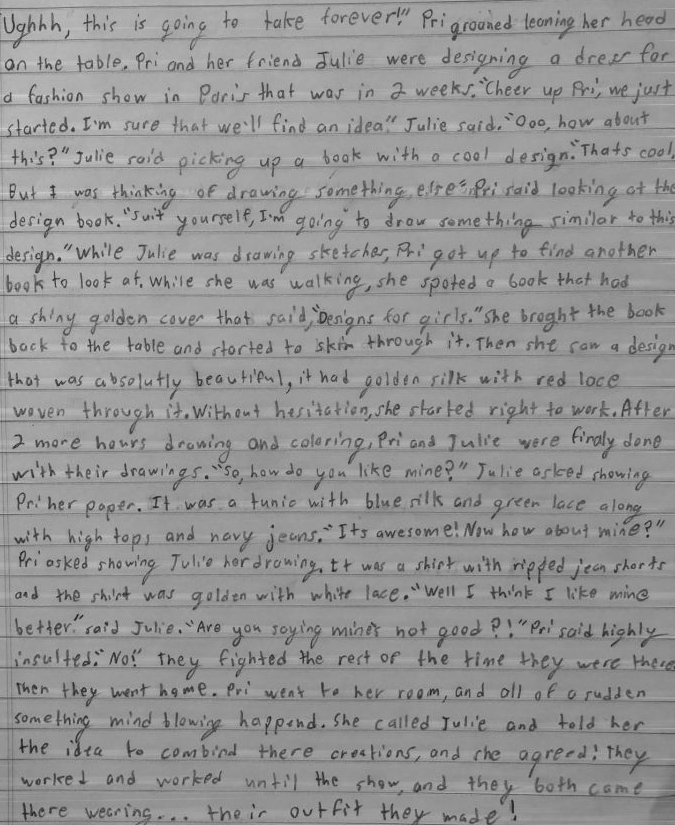 Ughhh, this is going to take forever!" Pri groaned leaning her head
on the table. Pri and her friend Julie were designing a dress for
a fashion show in Paris that was in 2 weeks. "Cheer up Pri, we just
started. I'm sure that we'll find an idea." Julie said. "Ooo, how about
this?" Julie said picking up a book with a cool design. "Thats cool,
But I was thinking of drawing something else" Pri said looking at the
design book. "Suit yourself, I'm going to draw something similar to this
design." While Julie was drawing sketches, Pri got up to find another
book to look at. While she was walking, she spoted a book that had
a shiny golden cover that said, "Designs for girls." She broght the book
back to the table and started to skim through it. Then she saw a design
that was absolutly beautiful, it had golden silk with red lace
woven through it. Without hesitation, she started right to work. After
2 more hours drawing and coloring, Pri and Julie were finaly done
with their drawings. "So, how do you like mine?" Julie asked showing
Pri her paper. It was a tunic with blue silk and green lace along
with high tops and navy jeans. "Its awesome! Now how about mine?"
Pri asked showing Julie her drawing, It was a shirt with ripped jean shorts
and the shirt was golden with white lace. "Well I think I like mine
better." said Julie. "Are you saying mine's not good?!" Pri said highly
insulted. "No!" They fighted the rest of the time they were there
Then they went home. Pri went to her room, and all of a sudden
something mind blowing happend. She called Julie and told her
the idea to combind there creations, and she agreed! They
worked and worked until the show, and they both came
there wearing... their outfit they made!